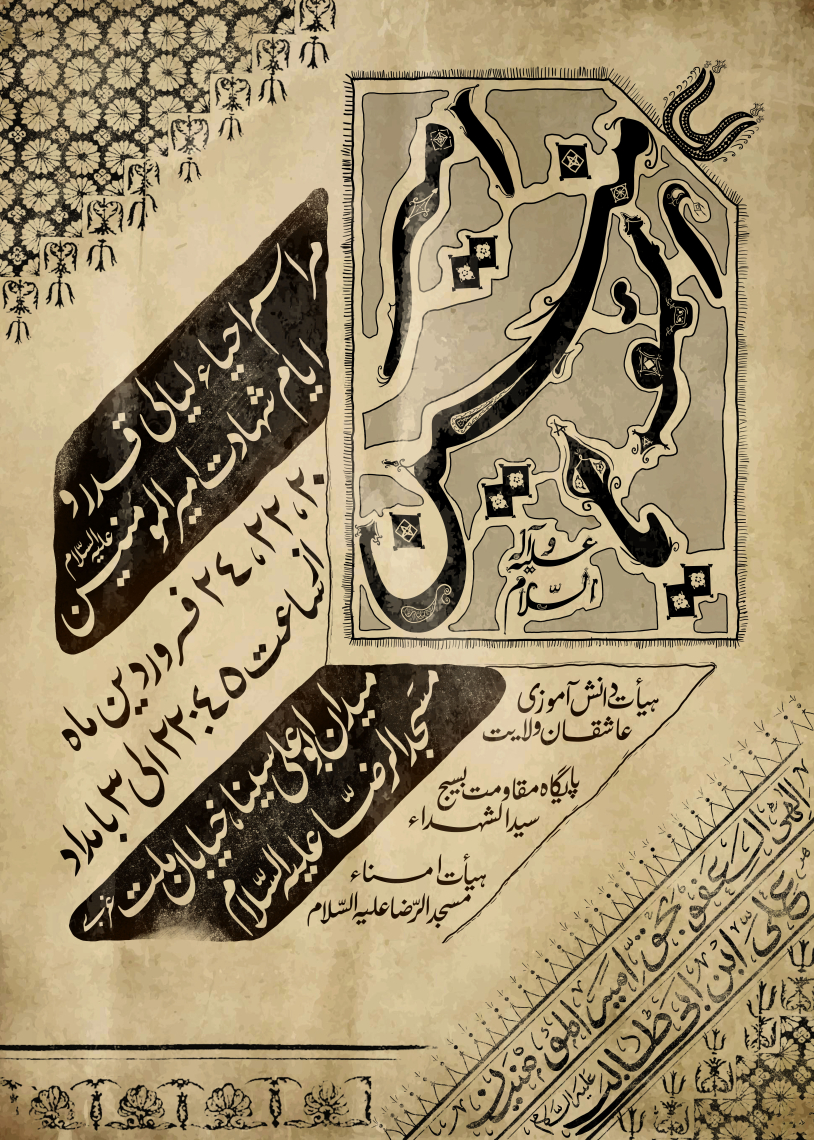 امیر المؤمنین
علیه و آله السلام
مراسم احیاء لیالی قدر و
ایام شهادت امیر المومنین
علیه السّلام
۲۰، ۲۲، ۲٤ فروردین ماه
از ساعت ۲۲:٤٥ الی ۳ بامداد
میدان بوعلی سینا، خیابان ملت غربی
مسجد الرضا علیه السّلام
هیأت دانش آموزی
عاشقان ولایت
پایگاه مقاومت بسیج
سید الشهداء
هیأت امناء
مسجد الرّضا علیه السّلام
الهی العفو بحق امیر المؤمنین
علی ابن ابی طالب علیه السلام